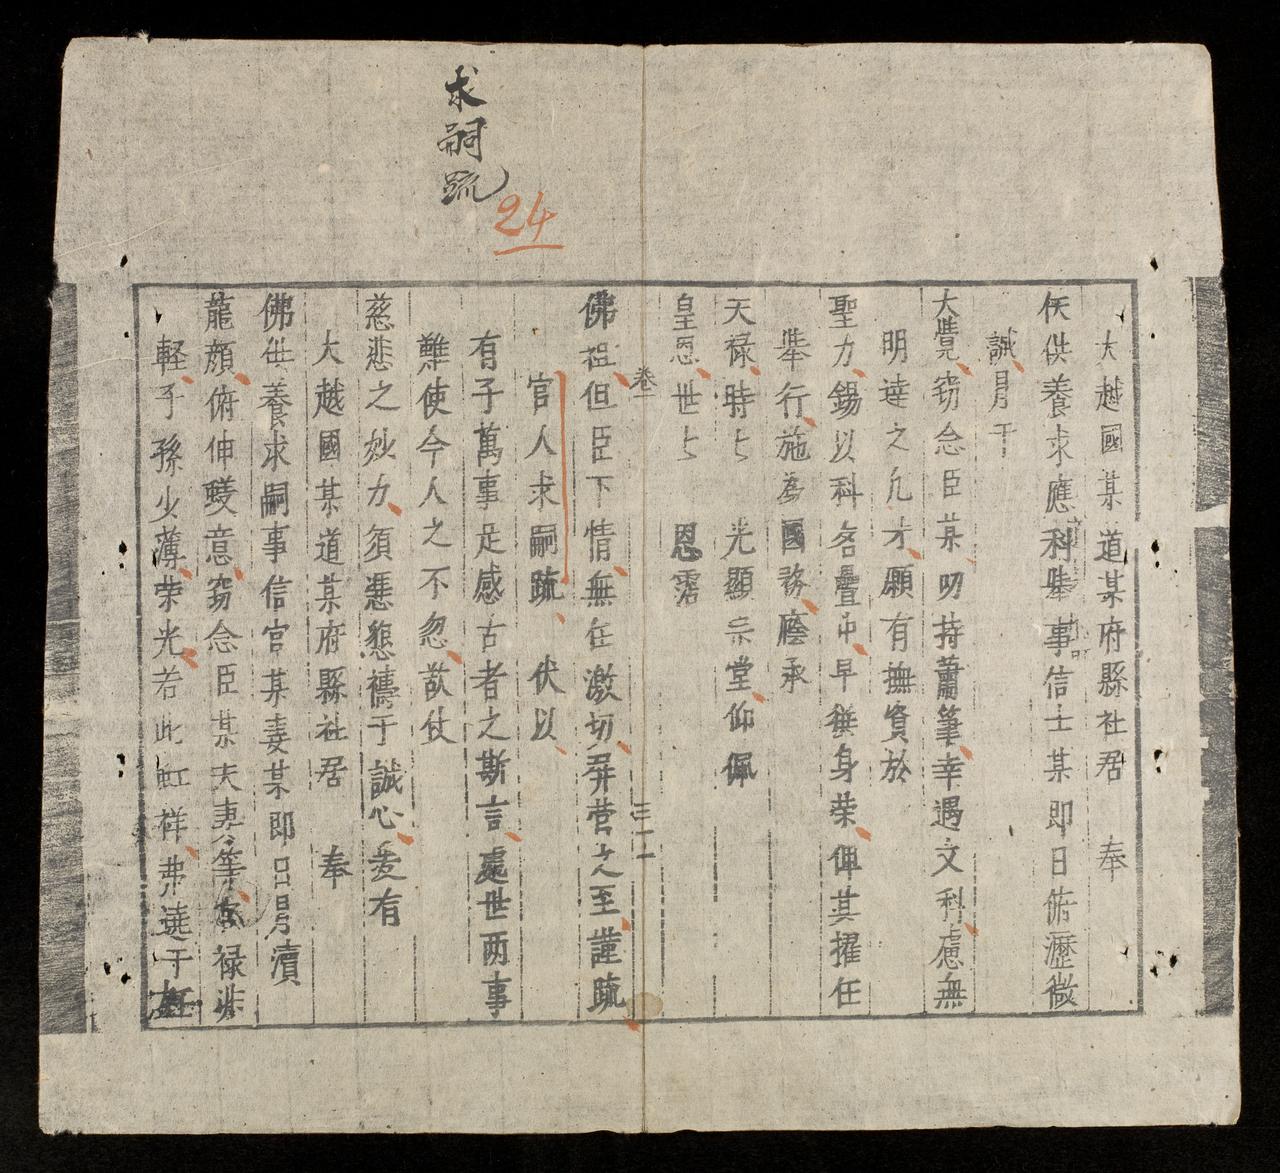 求嗣疏
24
大越國某道某府縣社居　奉
天供養求應科舉事信士某即日俯瀝微
誠冒干
大覺窃念臣某叨持蕭筆幸遇文科慮無
明達之凢才願有撫賓於
聖力錫以科名疊中早携身荣俾其擢任
舉行施為國務廕承
天禄時〻光顯宗堂仰佩
皇恩世〻　恩霑
卷一
三十一
佛祖但臣下情無任激切屏营之至謹疏
官人求嗣疏　伏以
有子萬事足感古者之斯言處世两事
難使今人之不忽敢仗
慈悲之妙力須憑懇禱于誠心爰有
大越國某道某府縣社居　奉
佛供養求嗣事信官某妻某即日冒瀆
龍顔俯伸蟻意窃念臣某夫妻等官禄非
軽子孫少薄荣光若此虹祥弗遶于